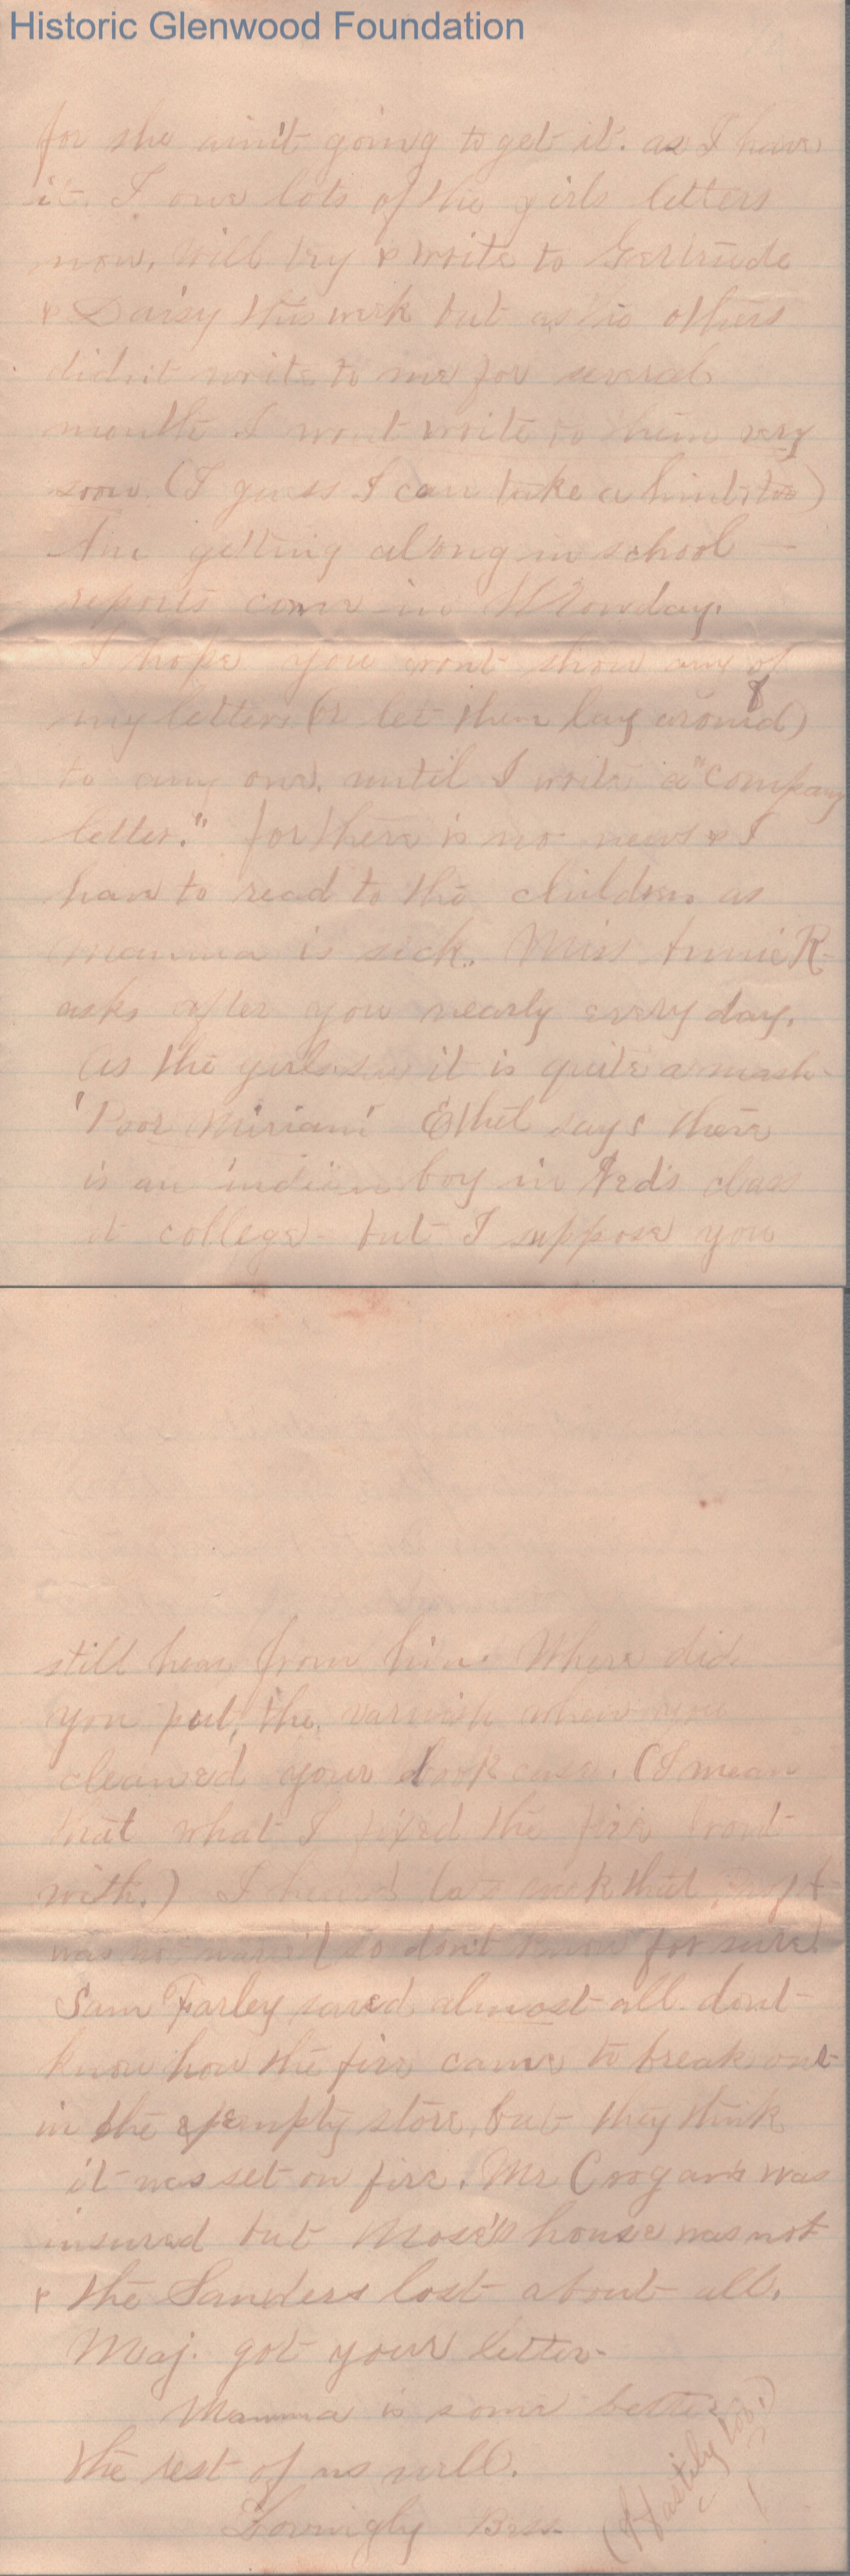 Historic Glenwood Foundation
for she ain't going to get it. as I have
it. I owe lots of the girls letters
now, Will try & write to Gertrude
& Daisy this week but as to others
didn't write to me for several
months I wont write to them very
soon. (I guess I can take a hint too)
Am getting along in school —
reports come in Monday.
I hope you wont show any of
my letters (or let them lay around)
to any one, until I write a "company
letter." for there is no news & I
have to read to the children as
mamma is sick. Miss Annie R-
asks after you nearly every day.
As the girls say it is quite a mash-
'Poor Miriam' Ethel says there
is an indian boy in Fred's class
at college but I suppose you
still hear from him. Where did
you put the varnish when you
cleaned your book case. (I mean
that what I fixed the fire front
with.) I heard last week that
was not (so don't know for sure)
Sam Farley saved almost all. dont
know how the fire came to break out
in the empty store, but they think
it was set on fire. Mr Coogan's was
insured but Mose's house was not
& the Sanders lost about all.
Maj. got your letter-
Mamma is some better
the rest of us well.
Lovingly Bess.
(Hastily too.)